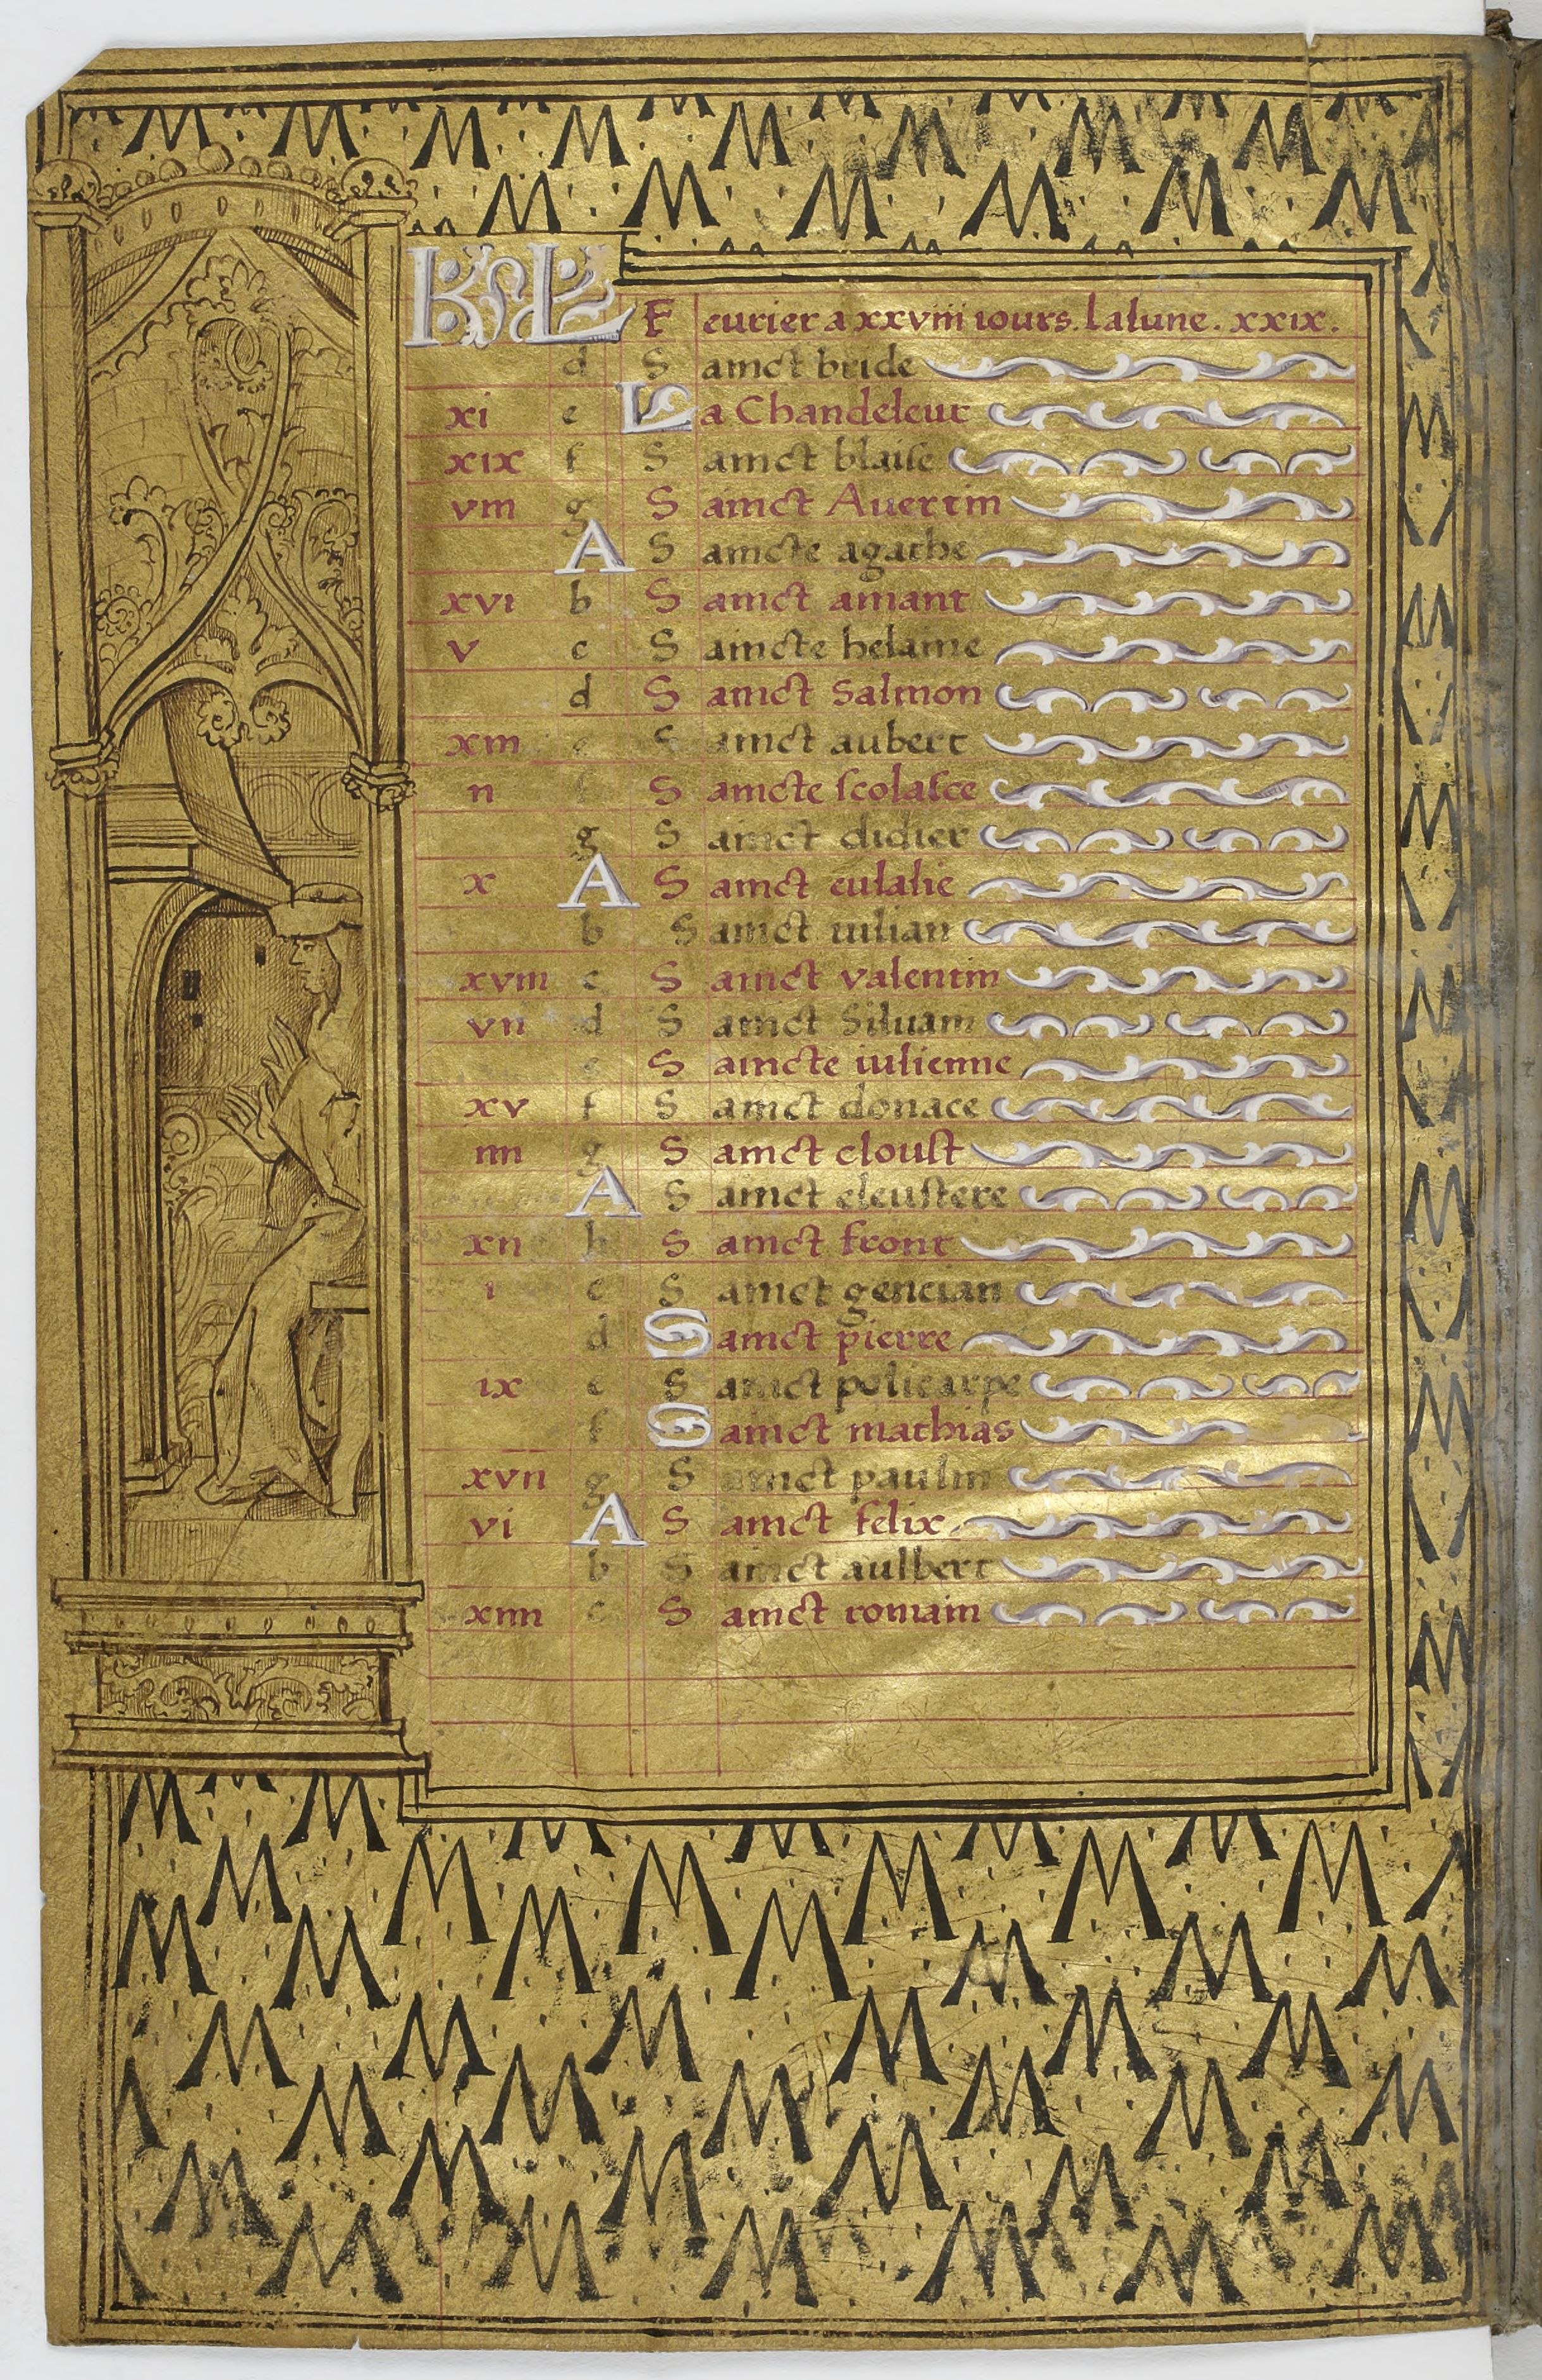 KL Feurier a xxviii iours. la lune. xxix.
d Sainct bride
xi e La Chandeleur
xix f Sainct blaise
viii g Sainct Auertin
A Saincte agathe
xvi b Sainct amant
v c Saincte helaine
d Sainct Salmon
xiii e Sainct aubert
ii f Saincte scolasce
g Sainct didier
x A Sainct eulalie
b Sainct iulian
xviii c Sainct valentin
vii d Sainct Siluain
e Saincte iulienne
xv f Sainct donace
iiii g Sainct cloust
A Sainct eleustere
xii b Sainct front
i c Sainct gencian
d Sainct pierre
ix e Sainct policarpe
f Sainct mathias
xvii g Sainct paulin
vi A Sainct felix
b Sainct aulbert
xiiii c Sainct romain